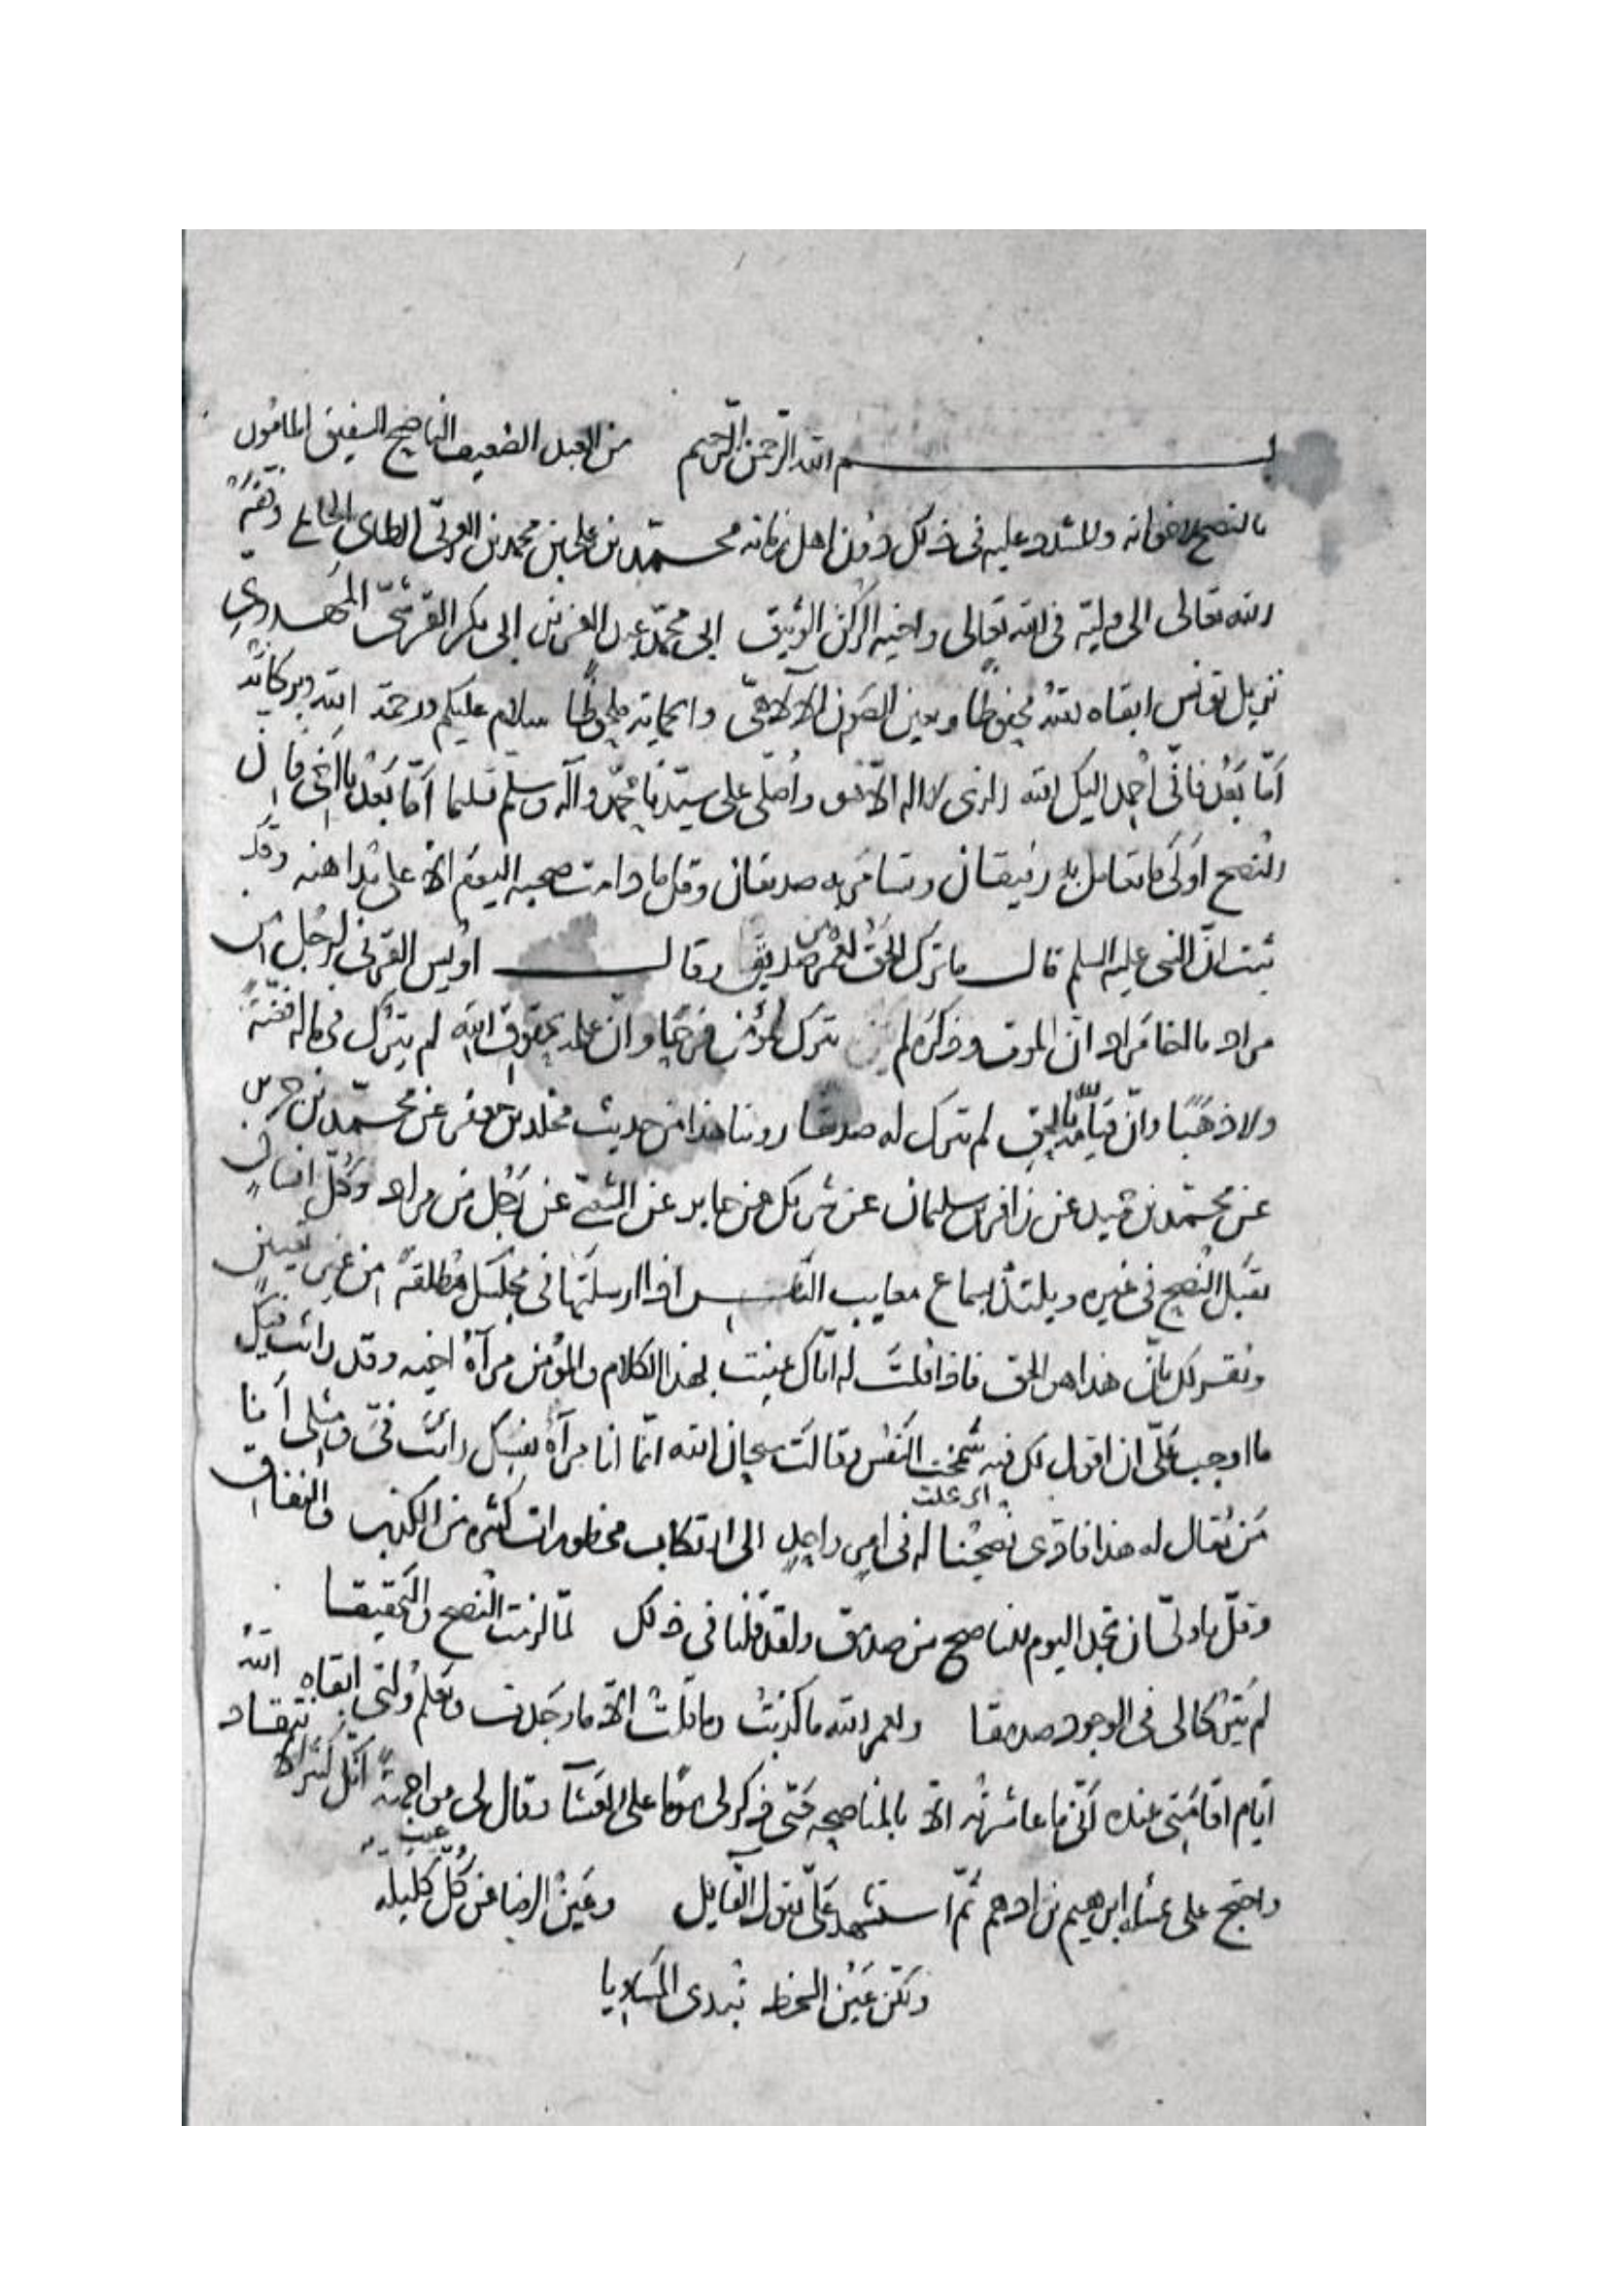 بسم الله الرحمن الرحيم من العبد الضعيف الناصح الشفيق المامور
بالنصح لاخوانه والمشدد عليه في ذلك دون اهل زمانه محمد بن علي بن محمد بن العربي الطاي الحاتمي وفقه
الله تعالى الى وليه في الله تعالى واخيه الركن الوثيق ابي محمد عبد العزيز بن ابي بكر القرشي المهدوي
نزيل تونس ابقاه الله محفوظا وبعين الصون الالاهي والحماية ملحوظا سلام عليكم ورحمة الله وبركاته
اما بعد فاني احمد اليك الله الذي لا اله الا هو واصلي على سيدنا محمد وآله وسلم تسليما اما بعد يا اخي فان
النصح اولى ما تعامل به رفيقان وتسامر به صديقان وقل ما دامت صحبة اليوم الا على مداهنة وقد
ثبت ان النبي عليه السلم قال ما ترك الحق لعمر من صديق وقال اويس القرني لرجل من
مراد يا اخا مراد ان الموت وذكره لم يترك لمؤمن فرحا وان علمه بحقوق الله لم يترك في ماله فضة
ولا ذهبا وان قيامه لله بالحق لم يترك له صديقا روينا هذا من حديث مخلد بن جعفر عن محمد بن جرير
عن محمد بن حميد عن زافر بن سليمان عن شريك عن جابر عن الشعبي عن رجل من مراد وكل انسان
يقبل النصح في غيره ويلتذ بسماع معايب الناس اذا ارسلتها في مجلسك مطلقة من غير تعيين
ويقر لك بان هذا هو الحق فاذا قلت له اياك عنيت بهذا الكلام والمؤمن مرآة اخيه وقد رايت فيك
ما اوجب علي ان اقول لك فيه شمخت النفس وقالت سبحان الله انما انا مرآة نفسك رايت في ومثلي انا
اي علت
من يقال له هذا فادى نصحنا له في امر واحد الى ارتكاب محظورات كثيره من الكذب والنفاق
وقل يا وليي ان تجد اليوم للناصح من صديق ولقد قلنا في ذلك لما لزمت النصح والتحقيقا
لم يتركا لي في الوجود صديقا ولعمر الله ما كذبت وما قلت الا ما وجدت وتعلم وليي ابقاه الله
ايام اقامتي عنده اني ما عاشرته الا بالمناصحه حتى ذكر لي يوما على العشآ وقال لي مواجهة انك كثير الانتقاد
واحتج على عشاء ابرهيم بن ادهم ثم استشهد علي بقول القايل وعين الرضا عن كل عيب كليله
ولكن عين السخط تبدي المساويا